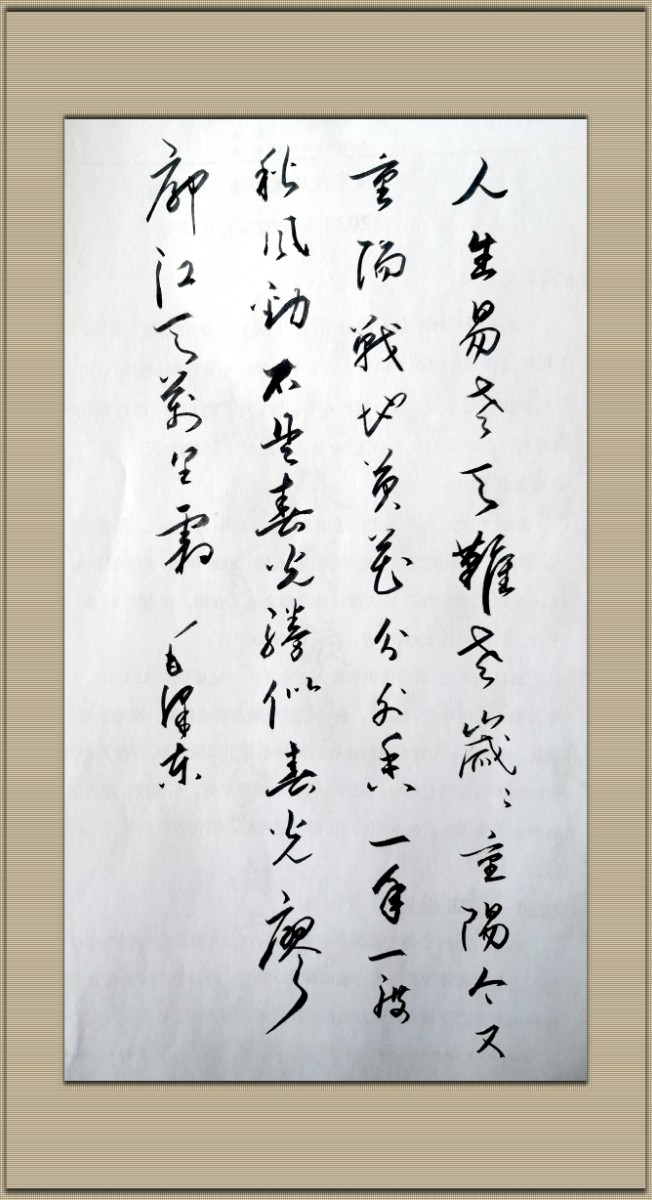 人生易老天難老歲〻重陽今又
重陽戰地黄花分外香一年一度
秋風勁不是春光勝似春光廖
廓江天萬里霜 毛澤东